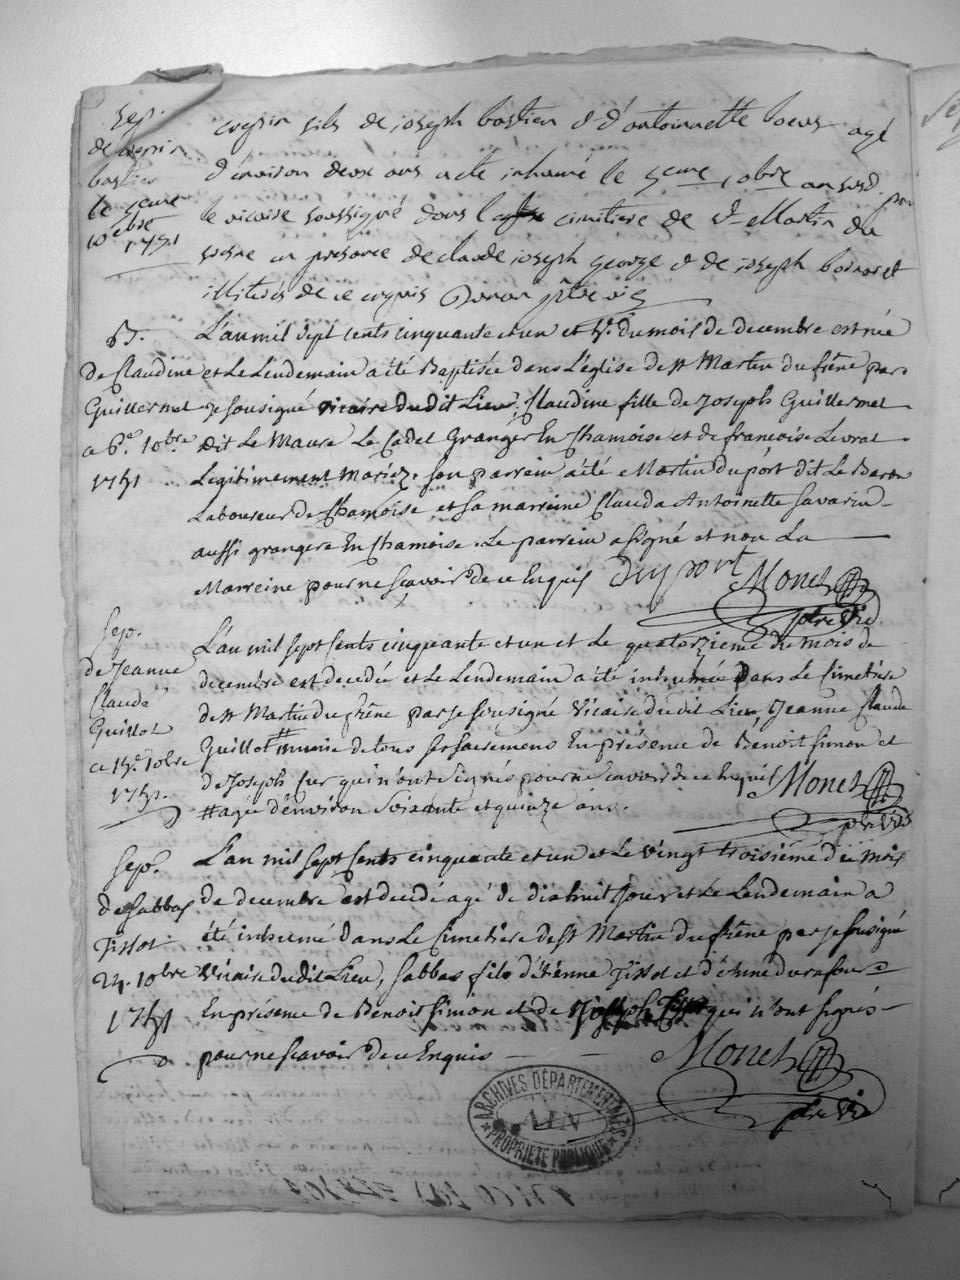 Sep.
de crepin
bastien
le 5eme
10bre
1751
crepin fils de joseph bastien & d'antoinette agé
d'environ deux ans a été inhumé le 5eme 10bre an susd. par
le vicaire soussigné dans la cimitiere de St Martin du
frene en presence de claude joseph george & de joseph
illiterés de ce enquis ptre vic
B.
de Claudine
Guillermet
ce 6e. 10bre
1751
L'an mil sept cents cinquante et un et le 5. du mois de decembre est née
et Le Lendemain a été Baptisée dans L'église de st Martin du frêne par
Je sousigné vicaire du dit Lieu, Claudine fille de Joseph Guillermet
dit Le Maure Le Cadet Granger En Chamoise et de francoise Levrat
Legitimement Mariez. son parrein a été Martin Duport dit Le Baron
Laboureur de Chamoise et sa marreine Clauda Antoinette Savarin
aussi grangere En Chamoise. Le parrein a signé et non La
Marreine pour ne scavoir de ce Enquis Duport Monet
ptre Vic.
Sep.
de Jeanne
Claude
Guillot
ce 15e. 10bre
1751.
L'an mil sept cents cinquante et un et Le quatorzieme du mois de
decembre est decedée et Le Lendemain a été inhumée Dans Le Cimetiere
de st Martin du frêne par Je sousigné Vicaire du dit Lieu, Jeanne Claude
Guillot # munie de tous ses sacremens En présence de Benoit Simon et
de Joseph qui n'ont signés pour ne scavoir de ce Enquis Monet
# agée d'environ Soixante et quinze ans.
ptre Vic
Sep.
de Sabbas
Tissot
24. 10bre
1751
L'an mil sept cents cinquante et un et Le vingt troisième du mois
de decembre est decedé agé de dixhuit Jour et Le Lendemain a
été inhumé dans Le Cimetiere de st Martin du frêne par Je sousigné
Vicaire du dit Lieu, Sabbas fils d'étienne Tissot et d'
En présence de Benoit Simon et de Joseph qui n'ont signés
pour ne scavoir de ce Enquis Monet
ptre Vic
ARCHIVES DÉPARTEMENTALES
AIN
PROPRIÉTÉ PUBLIQUE